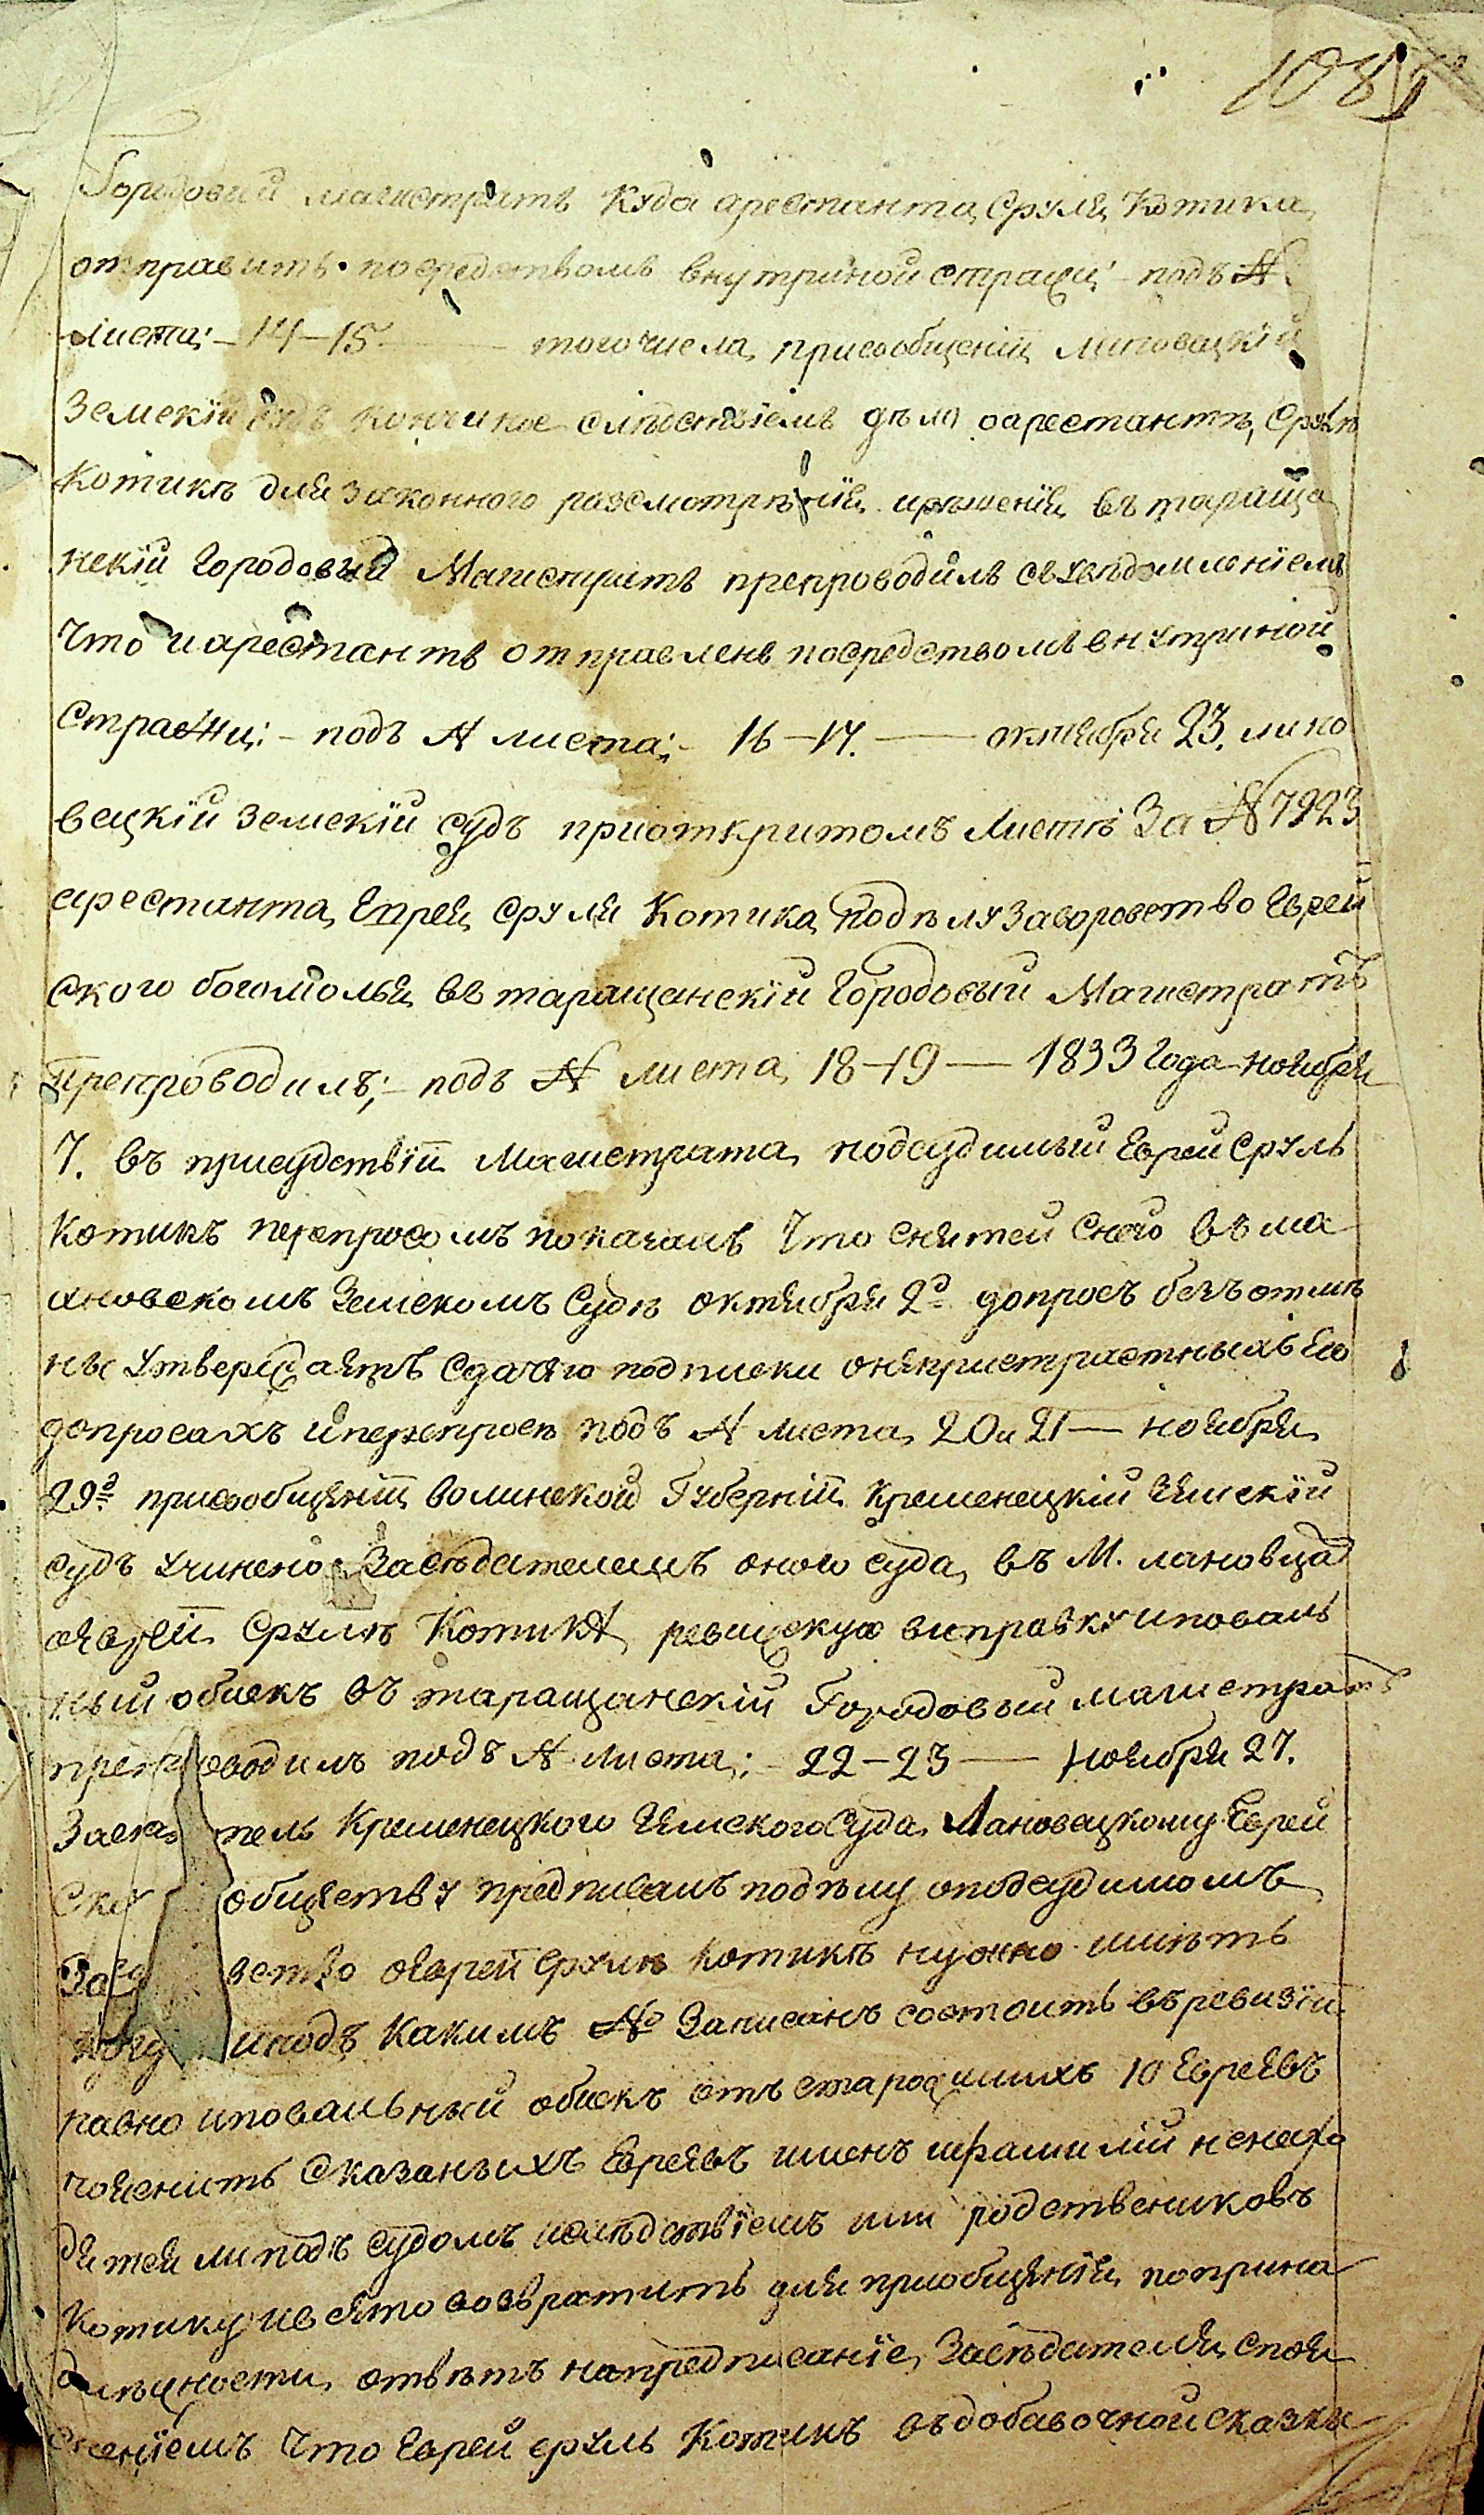 108
Городовый магистратъ куда арестанта Сруля Котика
отправить посредствомъ внутриной стражи подъ №
листа: 14–15. — того числа присообщеніи липовецкій
Земскій судъ конченое слѣдствіемъ дѣло оарестантѣ Срулѣ
Котикѣ для законного разсмотрѣнія ирѣшенія въ тараща
нскій Городовый Магистратъ препроводилъ сьувѣдомленіемъ
что иарестантъ отправленъ посредствомъ внутриной
стражи: подъ № листа: 16–17. — октября 23. липо
вецкій земскій судъ приоткритомъ листѣ За № 7923
арестанта Еврея Сруля Котика подѣлу Заворовство Еврей
ского богомолья въ таращанскій Городовый Магистратъ
препроводилъ; подъ № листа 18–19 — 1833 Года ноября
7. въ присудствіи Магистрата подсудимый Еврей Сруль
Котикъ перепросомъ показалъ что снятей снего въ ма
хновскомъ Земскомъ Судѣ октября 2го допросъ безъ отмѣ
ны утверждаетъ сдачею подписки онепристрастныхъ Его
допросахъ иперепросѣ подъ № листа 20и 21 — ноября
29го присообщеніи волинской Губерніи Кременецкій Земскій
судъ учинено Засѣдателемъ оного суда въ М. лановцах
оевреи Срулѣ Котикѣ ревижскую виправку иповаль
ный обискъ въ таращанскій Городовый магистратъ
препроводилъ подъ № листа: 22–23 — ноября 27.
Засѣдатель Кременецкого Земского Суда Лановецкому Еврей
ско обществу предписалъ подѣлу оподсудимомъ
За вство оевреи Срулѣ Котикѣ нужно имѣть
иподъ какимъ № Записанъ состоитъ въревизіи
равно иповальный обискъ отъ старожилихъ 10 Евреевъ
пояснить сказаныхъ Евреевъ именъ ифамилій ненахо
дятся липодъ судомъ ислѣдствіемъ или родствениковъ
Котику ивсято возвратить для приобщенія поприна
длѣжности отвѣтъ напредписаніе Засѣдателя спои
сненіемъ что Еврей Сруль Котикъ въдобавочной сказки